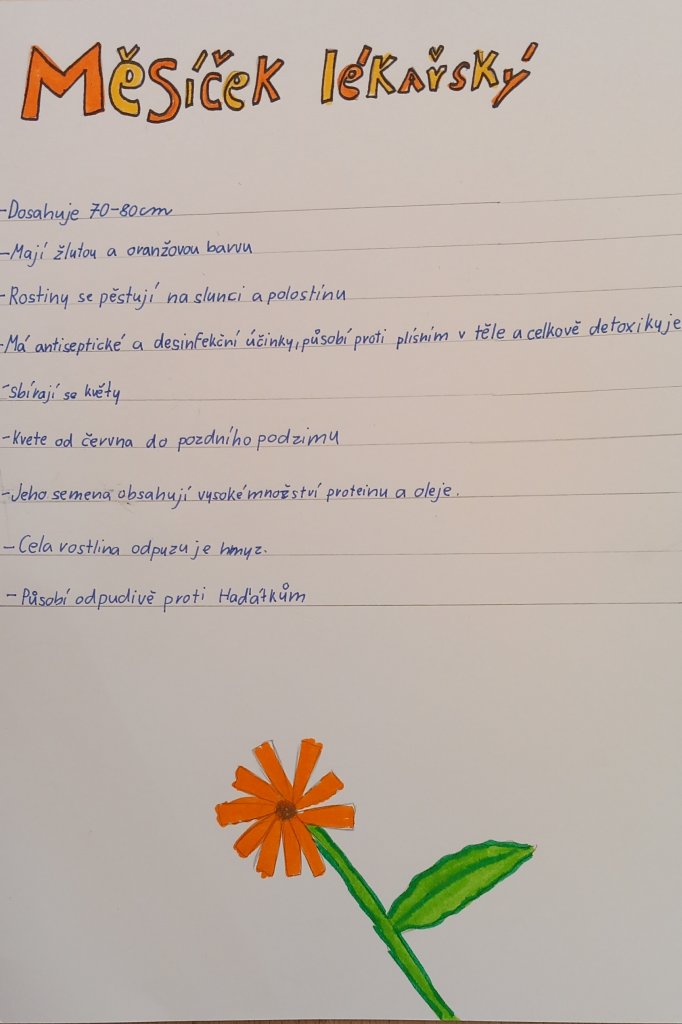 Měsíček lékařský
-Dosahuje 70-80cm
-Mají žlutou a oranžovou barvu
-Rostiny se pěstují na slunci a polostínu
-Má antiseptické a desinfekční účinky, působí proti plísním v těle a celkově detoxikuje
-Sbírají se květy
-Kvete od června do pozdního podzimu
-Jeho semena obsahují vysoké množství proteinu a oleje.
-Cela rostlina odpuzuje hmyz.
-Působí odpudivě proti Haďátkům